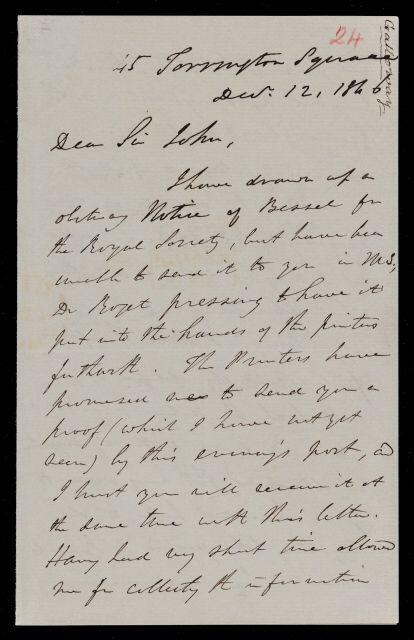 24
Galloway
45 Torrington Square
Decr. 12, 1846
Dear Sir John,
I have drawn up a
obituary Notice of Bessel for
the Royal Society, but have been
unable to send it to you in MS,
Dr Roget pressing to have it
put into the hands of the printers
forthwith. The Printers have
promised me to send you a
proof (which I have not yet
seen) by this evening's post, and
I trust you will receive it at
the same time with this letter.
Having had very short time allowed
me for collecting the information